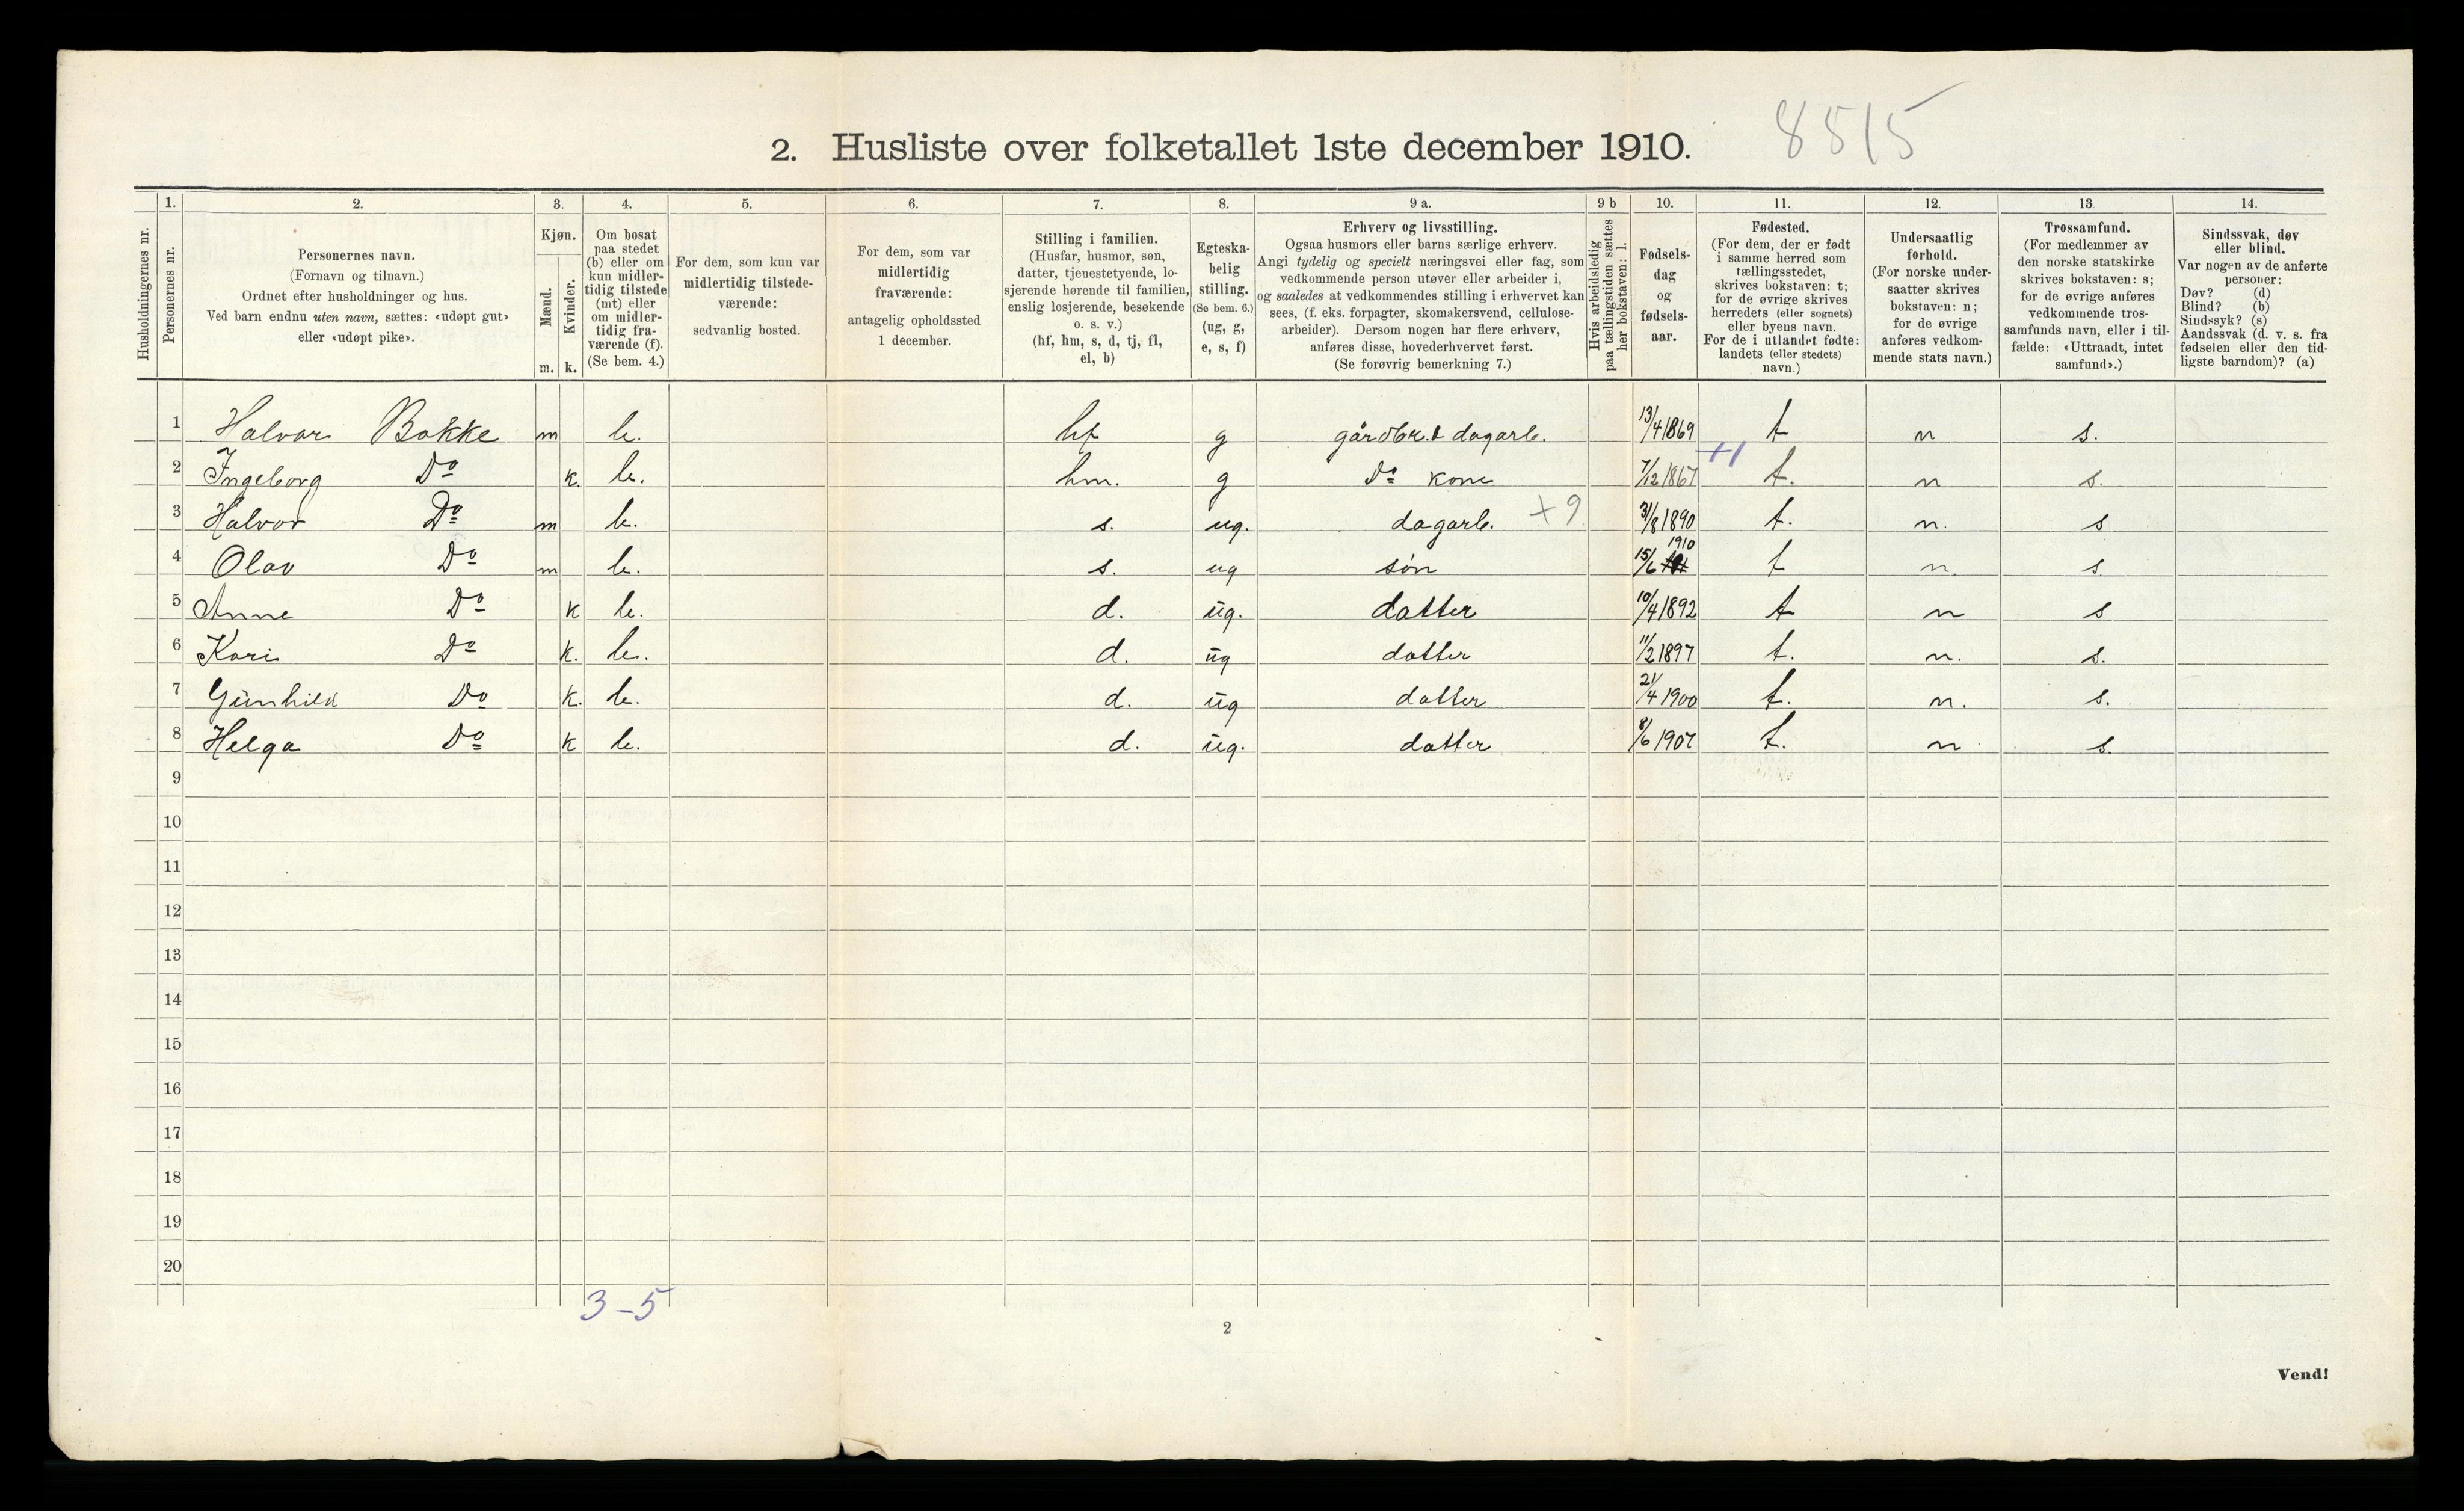 2. Husliste over folketallet 1ste december 1910. 8515
Husholdningernes nr.
1.
Personernes nr.
2.
Personernes navn.
(Fornavn og tilnavn.)
Ordnet efter husholdninger og hus.
Ved barn endnu uten navn, sættes: «udøpt gut»
eller «udøpt pike».
3.
Kjøn.
Mænd.
Kvinder.
m. k.
4.
Om bosat
paa stedet
(b) eller om
kun midler-
tidig tilstede
(mt) eller
om midler-
tidig fra-
værende (f).
(Se bem. 4.)
5.
For dem, som kun var
midlertidig tilstede-
værende:
sedvanlig bosted.
6.
For dem, som var
midlertidig
fraværende:
antagelig opholdssted
1 december.
7.
Stilling i familien.
(Husfar, husmor, søn,
datter, tjenestetyende, lo-
sjerende hørende til familien,
enslig losjerende, besøkende
o. s. v.)
(hf, hm, s, d, tj, fl,
el, b)
8.
Egteska-
belig
stilling.
(Se bem. 6.)
(ug, g,
e, s, f)
9 a.
Erhverv og livsstilling.
Ogsaa husmors eller barns særlige erhverv.
Angi tydelig og specielt næringsvei eller fag, som
vedkommende person utøver eller arbeider i,
og saaledes at vedkommendes stilling i erhvervet kan
sees, (f. eks. forpagter, skomakersvend, cellulose-
arbeider). Dersom nogen har flere erhverv,
anføres disse, hovederhvervet først.
(Se forøvrig bemerkning 7.)
9 b
Hvis arbeidsledig
paa tællingstiden sættes
her bokstaven: l.
10.
Fødsels-
dag
og
fødsels-
aar.
11.
Fødested.
(For dem, der er født
i samme herred som
tællingsstedet,
skrives bokstaven: t;
for de øvrige skrives
herredets (eller sognets)
eller byens navn.
For de i utlandet fødte:
landets (eller stedets)
navn.)
12.
Undersaatlig
forhold.
(For norske under-
saatter skrives
bokstaven: n;
for de øvrige
anføres vedkom-
mende stats navn.)
13.
Trossamfund.
(For medlemmer av
den norske statskirke
skrives bokstaven: s;
for de øvrige anføres
vedkommende tros-
samfunds navn, eller i til-
fælde: «Uttraadt, intet
samfund».)
14.
Sindssvak, døv
eller blind.
Var nogen av de anførte
personer:
Døv? (d)
Blind? (b)
Sindssyk? (s)
Aandssvak (d. v. s. fra
fødselen eller den tid-
ligste barndom)? (a)
1 Halvor Bakke m b. hf g gårdbr. & dagarb. 13/4 1869 t n s.
2 Ingeborg Do k. b. hm. g Do kone 7/12 1867 +1 t. n s.
3 Halvor Do m b. s. ug. dagarb. +9 31/8 1890 t. n. s
4 Olav Do m b. s. ug søn 15/6 1910 t n. s
5 Anne Do k b. d. ug. datter 10/4 1892 t n s
6 Kari Do k. b. d. ug datter 11/2 1897 t. n. s.
7 Gunhild Do k. b. d. ug datter 21/4 1900 t. n. s.
8 Helga Do k b. d. ug. datter 8/6 1907 t. n s.
9
10
11
12
13
14
15
16
17
18
19
20
3-5
2
Vend!